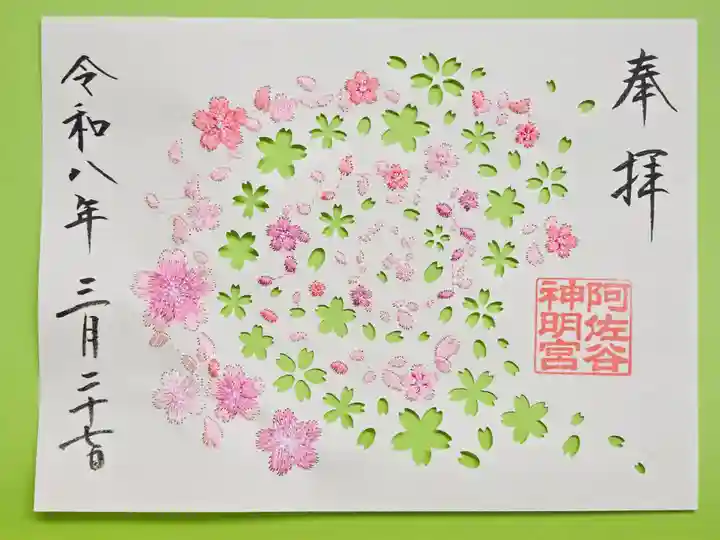 奉拝
阿佐谷
神明宮
令和八年 三月二十七日